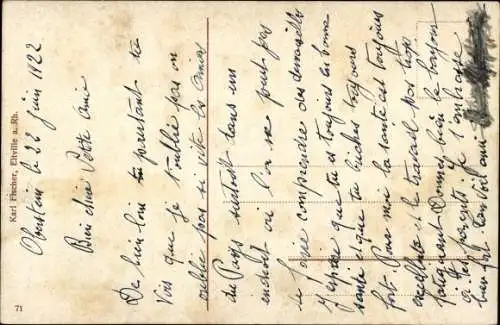 Oberstein le 22 juin 1922
Bien chère Petite Amie
De bien loin pourtant tu
vois que je t'oublie pas on
oublie pas si vite les amies
du Pays surtout dans un
endroit où l'on ne peut pas
se faire comprendre des demoiselles
J'espère que tu es toujours en bonne
santé et que tu bûches toujours
fort. Pour moi la santé est toujours
excellente et le travail pas trop
fatiguant. Donnes bien le bonjour
à tes parents. Je t'embrasse
bien fort. Ton ami
Karl Fischer, Eltville a. Rh.
71